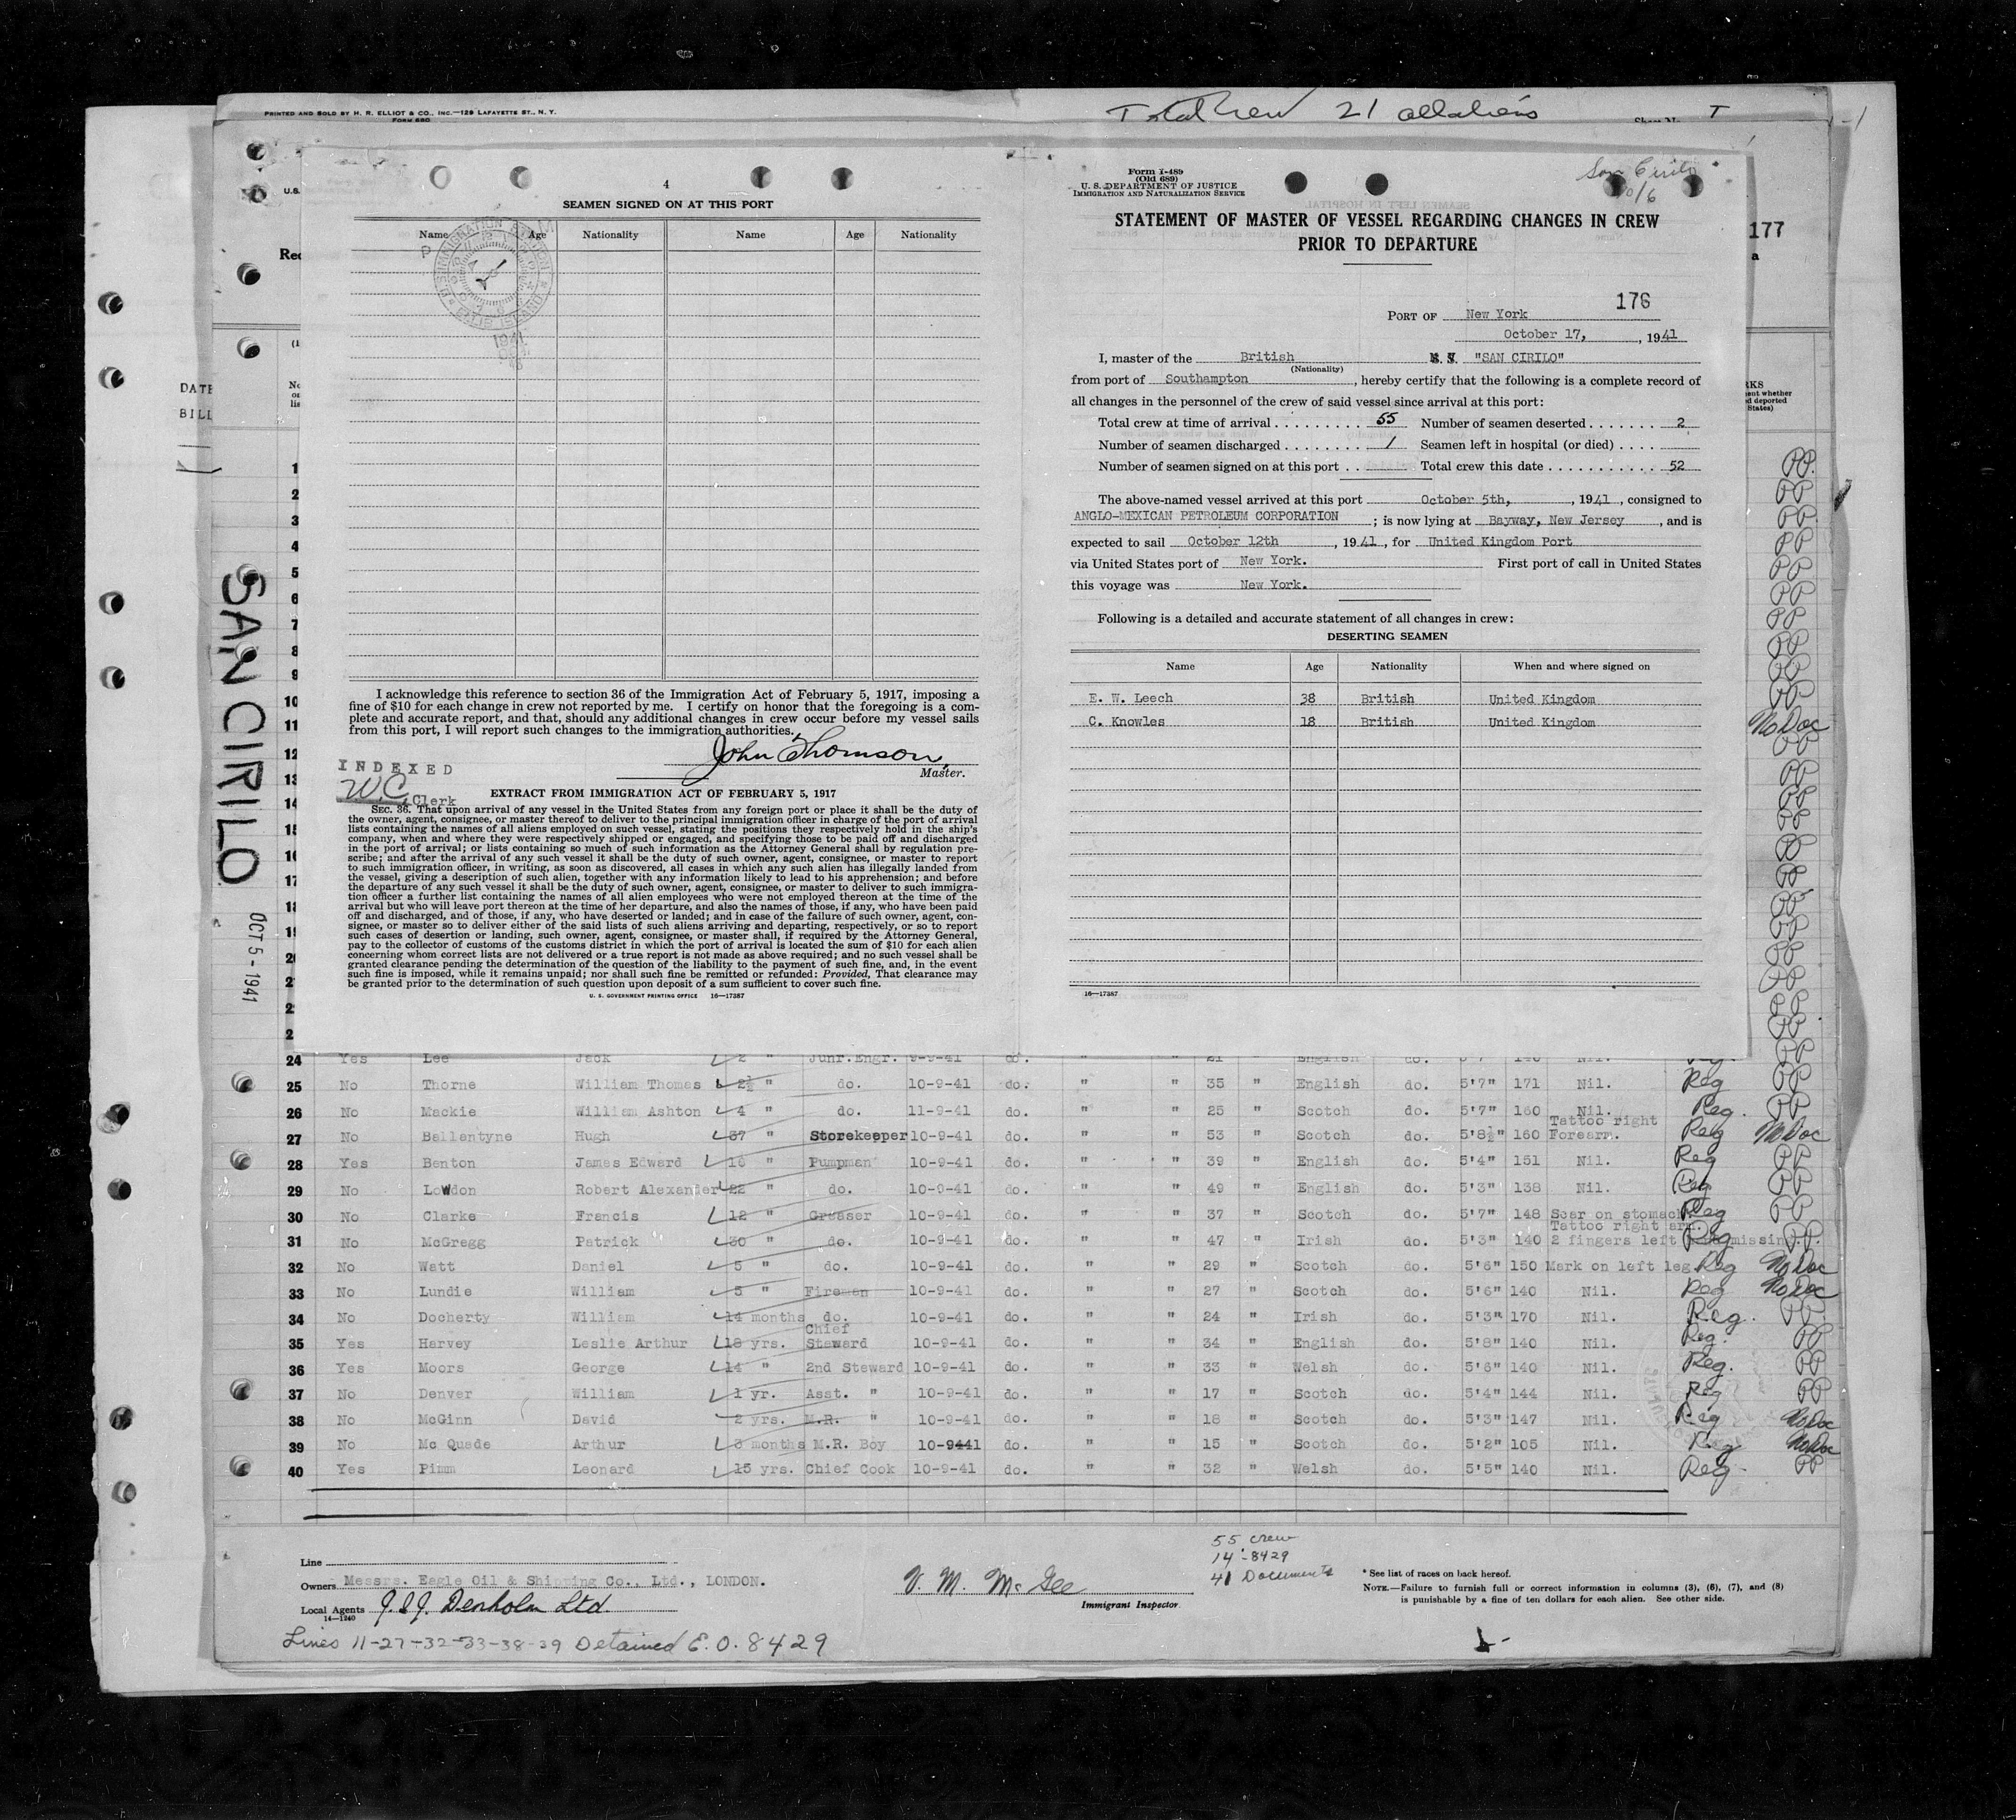 PRINTED AND SOLD BY H. R. ELLIOT & CO., INC.—129 LAFAYETTE ST., N. Y.
FORM 680
Total crew 21 all aliens
177
DATE
BILL
SAN CIRILO
OCT 5 - 1941
4
SEAMEN SIGNED ON AT THIS PORT
Name Age Nationality Name Age Nationality
I acknowledge this reference to section 36 of the Immigration Act of February 5, 1917, imposing a
fine of $10 for each change in crew not reported by me. I certify on honor that the foregoing is a com-
plete and accurate report, and that, should any additional changes in crew occur before my vessel sails
from this port, I will report such changes to the immigration authorities.
John Thomson
Master.
INDEXED
W.C. Clerk
EXTRACT FROM IMMIGRATION ACT OF FEBRUARY 5, 1917
SEC. 36. That upon arrival of any vessel in the United States from any foreign port or place it shall be the duty of
the owner, agent, consignee, or master thereof to deliver to the principal immigration officer in charge of the port of arrival
lists containing the names of all aliens employed on such vessel, stating the positions they respectively hold in the ship's
company, when and where they were respectively shipped or engaged, and specifying those to be paid off and discharged
in the port of arrival; or lists containing so much of such information as the Attorney General shall by regulation pre-
scribe; and after the arrival of any such vessel it shall be the duty of such owner, agent, consignee, or master to report
to such immigration officer, in writing, as soon as discovered, all cases in which any such alien has illegally landed from
the vessel, giving a description of such alien, together with any information likely to lead to his apprehension; and before
the departure of any such vessel it shall be the duty of such owner, agent, consignee, or master to deliver to such immigra-
tion officer a further list containing the names of all alien employees who were not employed thereon at the time of the
arrival but who will leave port thereon at the time of her departure, and also the names of those, if any, who have been paid
off and discharged, and of those, if any, who have deserted or landed; and in case of the failure of such owner, agent, con-
signee, or master so to deliver either of the said lists of such aliens arriving and departing, respectively, or so to report
such cases of desertion or landing, such owner, agent, consignee, or master shall, if required by the Attorney General,
pay to the collector of customs of the customs district in which the port of arrival is located the sum of $10 for each alien
concerning whom correct lists are not delivered or a true report is not made as above required; and no such vessel shall be
granted clearance pending the determination of the question of the liability to the payment of such fine, and, in the event
such fine is imposed, while it remains unpaid; nor shall such fine be remitted or refunded: Provided, That clearance may
be granted prior to the determination of such question upon deposit of a sum sufficient to cover such fine.
U. S. GOVERNMENT PRINTING OFFICE 16—17387
Form I-489
(Old 689)
U. S. DEPARTMENT OF JUSTICE
IMMIGRATION AND NATURALIZATION SERVICE
San Cirilo
10/6
STATEMENT OF MASTER OF VESSEL REGARDING CHANGES IN CREW
PRIOR TO DEPARTURE
176
PORT OF New York
October 17, , 1941
I, master of the British M. V. "SAN CIRILO"
(Nationality)
from port of Southampton , hereby certify that the following is a complete record of
all changes in the personnel of the crew of said vessel since arrival at this port:
Total crew at time of arrival 55 Number of seamen deserted 2
Number of seamen discharged 1 Seamen left in hospital (or died)
Number of seamen signed on at this port Total crew this date 52
The above-named vessel arrived at this port October 5th, , 1941 , consigned to
ANGLO-MEXICAN PETROLEUM CORPORATION ; is now lying at Bayway, New Jersey , and is
expected to sail October 12th , 1941 , for United Kingdom Port
via United States port of New York. First port of call in United States
this voyage was New York.
Following is a detailed and accurate statement of all changes in crew:
DESERTING SEAMEN
Name Age Nationality When and where signed on
E. W. Leech 38 British United Kingdom
C. Knowles 18 British United Kingdom
16—17387
24 Yes Lee Jack 2 " Junr.Engr. 9-9-41 do. " 21 " English do. 5'7" 140 Nil. Reg. PP
25 No Thorne William Thomas 2½ " do. 10-9-41 do. " " 35 " English do. 5'7" 171 Nil. Reg PP
26 No Mackie William Ashton 4 " do. 11-9-41 do. " " 25 " Scotch do. 5'7" 160 Nil. Reg. PP
27 No Ballentyne Hugh 37 " Storekeeper 10-9-41 do. " " 53 " Scotch do. 5'8½" 160 Tattoo right Forearm. Reg No Doc
28 Yes Benton James Edward 16 " Pumpman 10-9-41 do. " " 39 " English do. 5'4" 151 Nil. Reg PP
29 No Lowdon Robert Alexander 22 " do. 10-9-41 do. " " 49 " English do. 5'3" 138 Nil. Reg. PP
30 No Clarke Francis 12 " Greaser 10-9-41 do. " " 37 " Scotch do. 5'7" 148 Scar on stomach Reg PP
31 No McGregg Patrick 30 " do. 10-9-41 do. " " 47 " Irish do. 5'3" 140 Tattoo right arm. 2 fingers left missing. Reg P.P.
32 No Watt Daniel 5 " do. 10-9-41 do. " " 29 " Scotch do. 5'6" 150 Mark on left leg. Reg No Doc
33 No Lundie William 5 " Fireman 10-9-41 do. " " 27 " Scotch do. 5'6" 140 Nil. Reg No Doc
34 No Docherty William 14 months do. 10-9-41 do. " " 24 " Irish do. 5'3" 170 Nil. Reg. PP
35 Yes Harvey Leslie Arthur 18 yrs. Chief Steward 10-9-41 do. " " 34 " English do. 5'8" 140 Nil. Reg. PP
36 Yes Moors George 14 " 2nd Steward 10-9-41 do. " " 33 " Welsh do. 5'6" 140 Nil. Reg. PP
37 No Denver William 1 yr. Asst. " 10-9-41 do. " " 17 " Scotch do. 5'4" 144 Nil. Reg PP
38 No McGinn David 2 yrs. M.R. " 10-9-41 do. " " 18 " Scotch do. 5'3" 147 Nil. Reg No Doc
39 No Mc Quade Arthur 3 months M.R. Boy 10-9-41 do. " " 15 " Scotch do. 5'2" 105 Nil. Reg No Doc
40 Yes Pimm Leonard 15 yrs. Chief Cook 10-9-41 do. " " 32 " Welsh do. 5'5" 140 Nil. Reg. PP
Line
Owners Messrs. Eagle Oil & Shipping Co., Ltd., LONDON.
Local Agents J. & J. Denholm Ltd.
14—1240
V. M. McGee
Immigrant Inspector.
55 crew
14 - 8429
41 Documents
* See list of races on back hereof.
NOTE.—Failure to furnish full or correct information in columns (3), (6), (7), and (8)
is punishable by a fine of ten dollars for each alien. See other side.
Lines 11-27-32-33-38-39 Detained E.O. 8429